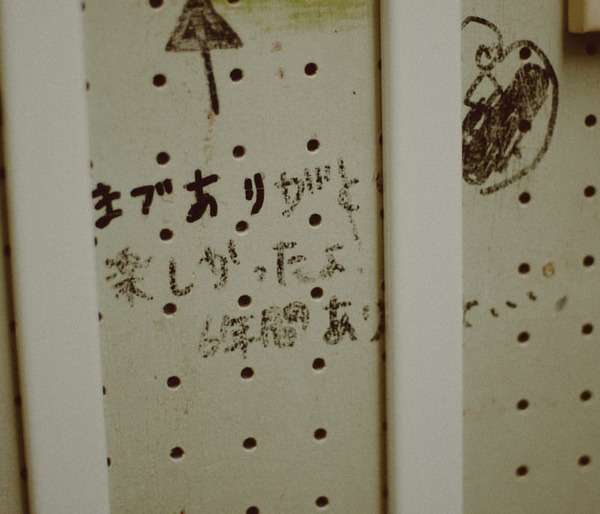 までありがと
楽しかったよ
6年間あり